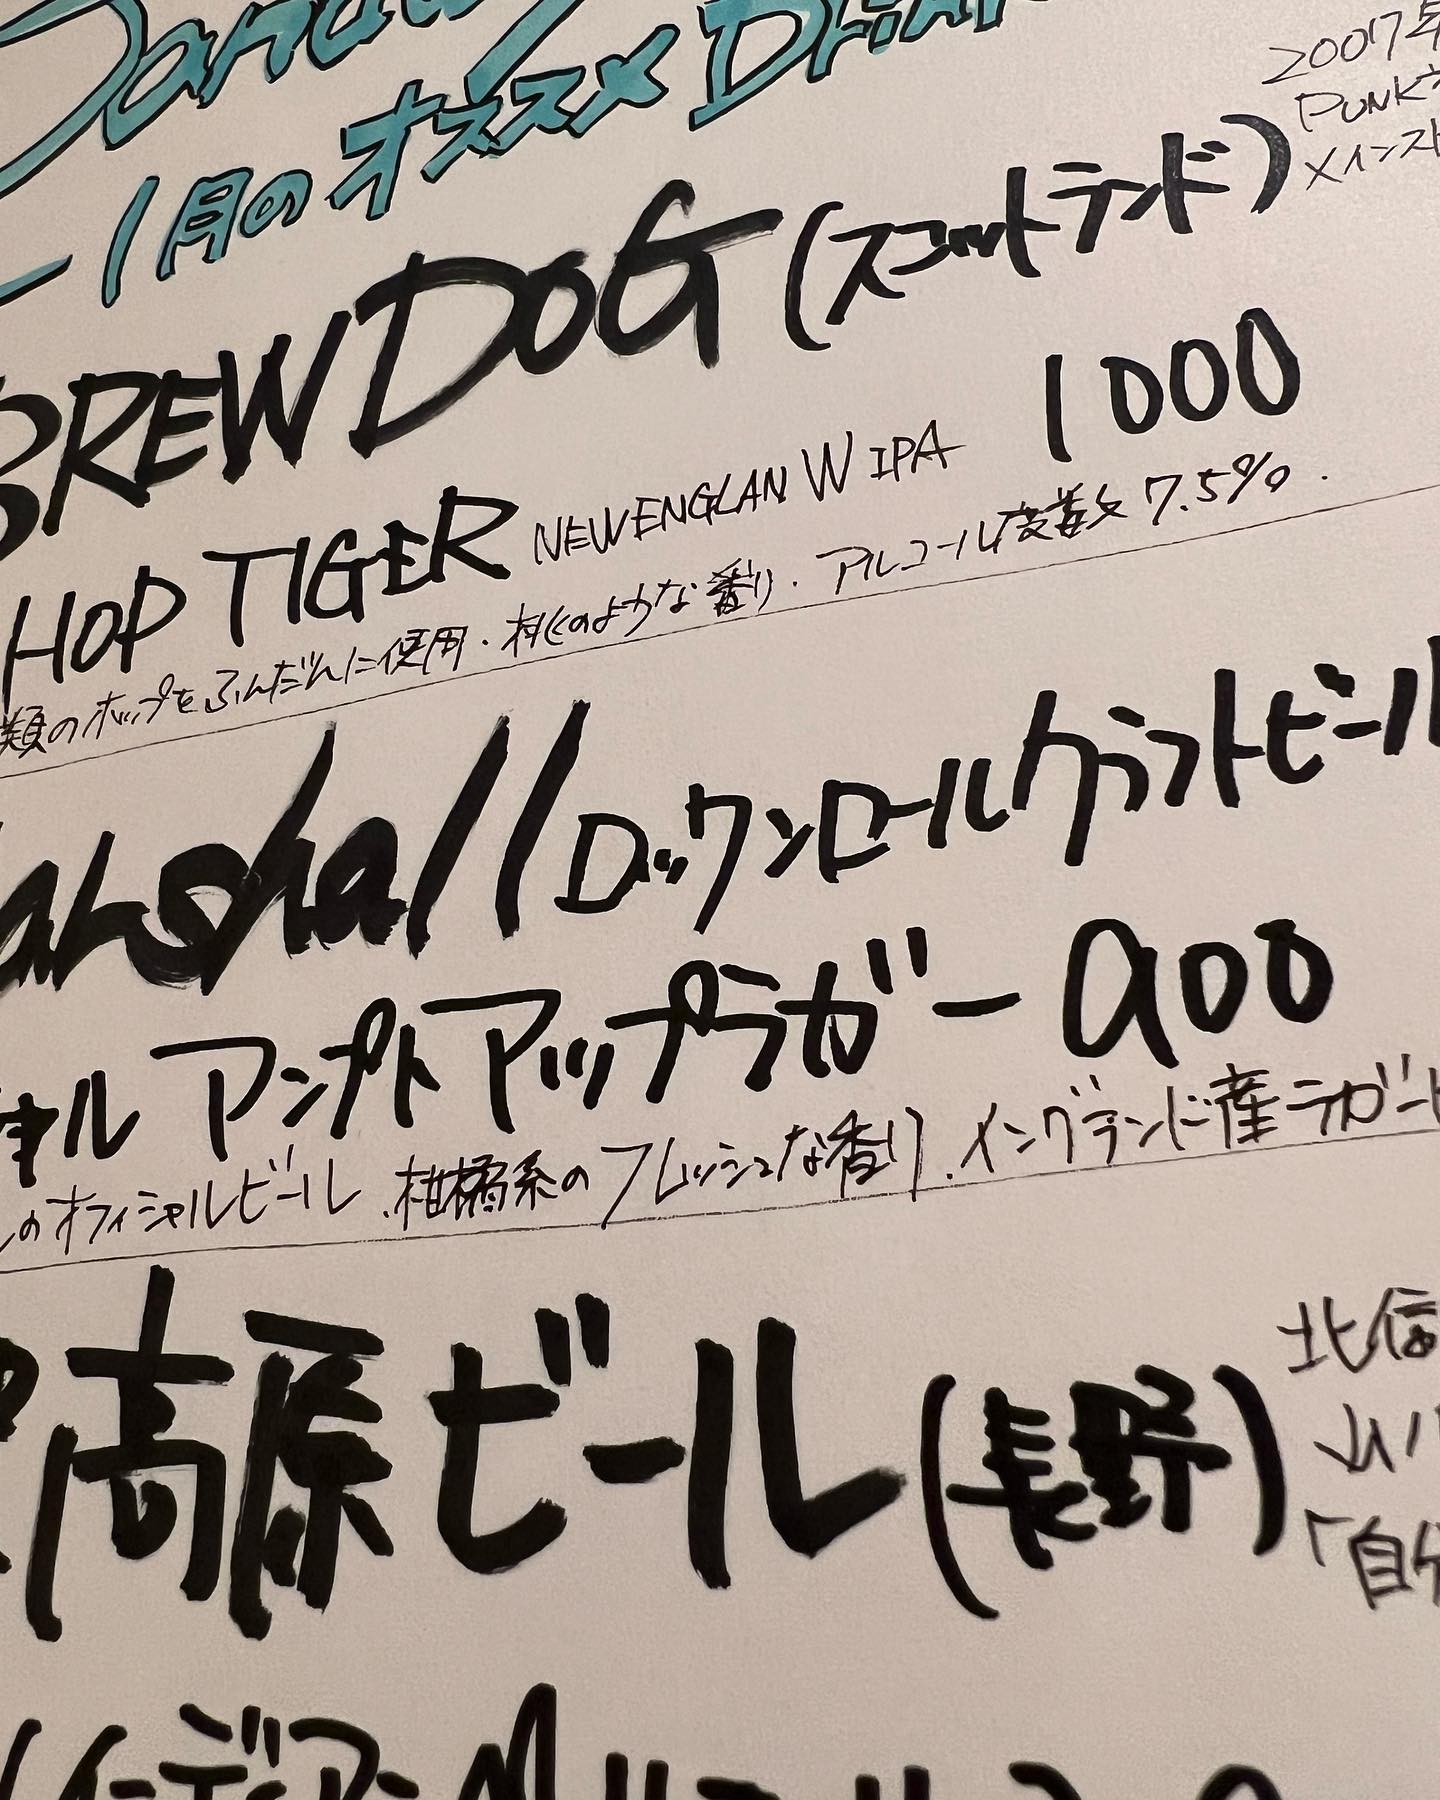 1月のオススメ Drink
2007年
PUNK
メインスト
BREWDOG (スコットランド)
HOP TIGER NEWENGLAN W IPA 1000
類のホップをふんだんに使用.桃のような香り.アルコール度数 7.5%.
arshall ロックンロールクラフトビール
アンプドアップラガー 900
のオフィシャルビール.柑橘系のフレッシュな香り.イングランド産ラガービ
高原ビール (長野)
北信
「自分
インディアン